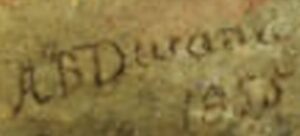 A B Durand
1855